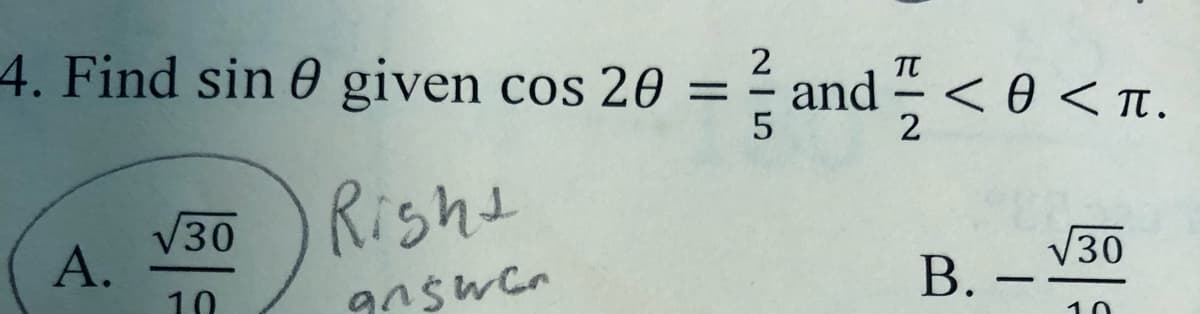 4. Find sin θ given cos 2θ = 2/5 and π/2 < θ < π.
A. √30/10 Right answer
B. −√30/10